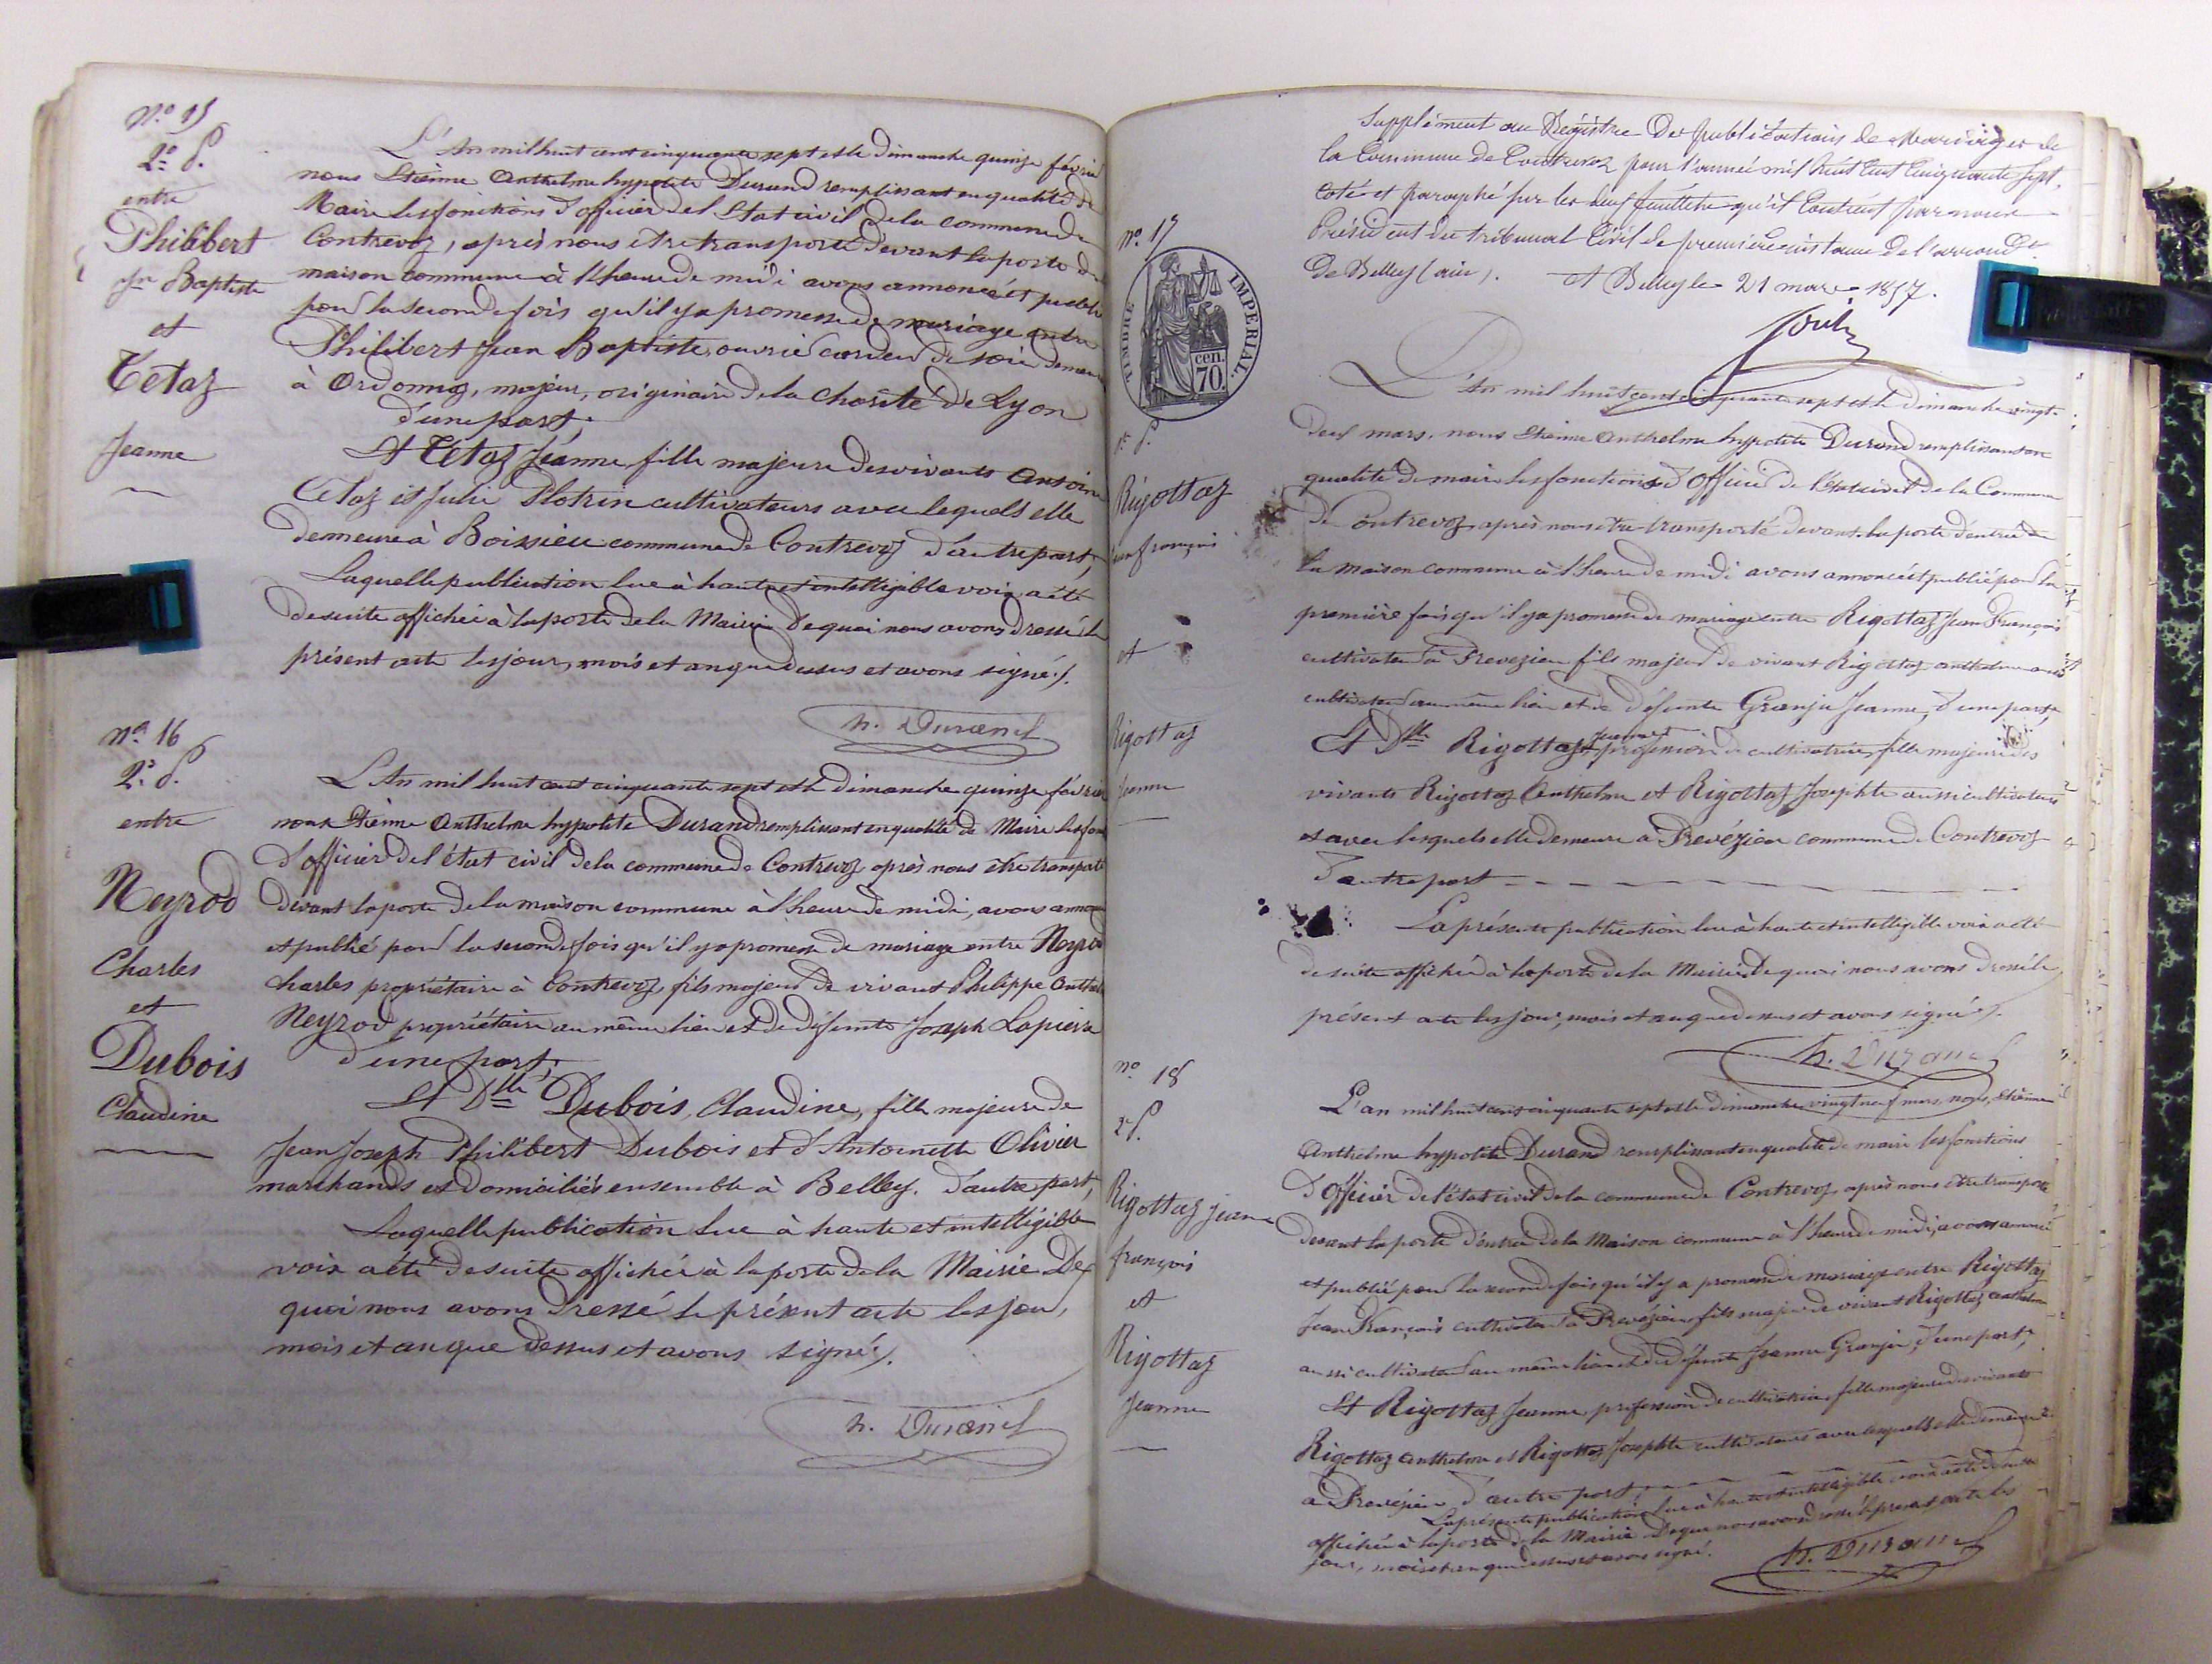 N.° 15
2.e P.
entre
Philibert
Jn Baptiste
et
Tetaz
Jeanne
L'An mil huit cent cinquante sept et le dimanche quinze février
nous Etienne Anthelme hypolite Durand remplissant en qualité de
Maire les fonctions d'officier de l'Etat civil de la commune de
Contrevoz, après nous être transporté devant la porte de
maison commune à l'heure de midi avons annoncé et publié
pour la seconde fois qu'il y a promesse de mariage entre
Philibert Jean Baptiste, ouvrier cardeur de soie demeur
à Ordonnaz, majeur, originaire de la charité de Lyon
d'une part,
Et Tetaz Jeanne fille majeure des vivants Antoine
Tetaz et Julie Plotrin cultivateurs avec lequels elle
demeure à Boissieu commune de Contrevoz d'autre part,
Laquelle publication lue à haute et intelligible voix a été
de suite affichée à la porte de la Mairie de quoi nous avons dressé le
présent acte les jour, mois et an que dessus et avons signé /.
h. Durand
N.° 16
2.e P.
entre
Neyrod
Charles
et
Dubois
Claudine
L'An mil huit cent cinquante sept et le dimanche quinze février
nous Etienne Anthelme hypolite Durand remplissant en qualité de Maire les fon
d'officier de l'état civil de la commune de Contrevoz après nous être transporté
devant la porte de la maison commune à l'heure de midi, avons annon
et publié pour la seconde fois qu'il y a promesse de mariage entre Neyrod
Charles propriétaire à Contrevoz, fils majeur de vivant Philippe Anthel
Neyrod propriétaire au même lieu et de défunte Joseph Lapierre
d'une part,
Et Dlle Dubois, Claudine, fille majeure de
Jean Joseph Philibert Dubois et d'Antoinette Olivier
marchands et domiciliés ensemble à Belley. d'autre part,
Laquelle publication lue à haute et intelligible
voix a été de suite affichée à la porte de la Mairie De
quoi nous avons dressé le présent acte les jour,
mois et an que dessus et avons signé /.
h. Durand
Supplément au Registre des publications de Mariages de
la Commune de Contrevoz pour l'année mil huit cent cinquante sept,
coté et paraphé sur les deux feuillets qu'il contient par nous
Président du tribunal civil de première instance de l'arrondt
de Belley (ain). A Belley le 21 mars 1857.
n.° 17
TIMBRE IMPERIAL.
cen.
70.
1e P.
Rigottaz
jean françois
et
Rigottaz
Jeanne
L'An mil huit cent cinquante sept et le dimanche vingt
deux mars, nous Etienne Anthelme hypolite Durand remplissant en
qualité de maire les fonctions d'Officier de l'état civil de la Commune
de Contrevoz, après nous être transporté devant la porte d'entrée de
la maison commune à l'heure de midi avons annoncé et publié pour la
première fois qu'il y a promesse de mariage entre Rigottaz Jean François
cultivateur à Prevezieu fils majeur de vivant Rigottaz anthelme aussi
cultivateur au même lieu et de défunte Granjé Jeanne, d'une part,
Et Dlle Rigottaz Jeanne profession de cultivatrice, fille majeure des
vivants Rigottaz Anthelme et Rigottaz Josephte aussi cultivateurs
et avec lesquels elle demeure à Prevézieu commune de Contrevoz
d'autre part
La présente publication lue à haute et intelligible voix a été
de suite affichée à la porte de la Mairie De quoi nous avons dressé le
présent acte les jour, mois et an que dessus et avons signé /.
h. Durand
n.° 18
2e P.
Rigottaz jean
françois
et
Rigottaz
Jeanne
L'an mil huit cent cinquante sept et le dimanche vingt neuf mars, nous, Etienne
Anthelme hypolite Durand remplissant en qualité de maire les fonctions
d'Officier de l'état civil de la commune de Contrevoz, après nous être transporté
devant la porte d'entrée de la Maison commune à l'heure de midi, avons annoncé
et publié pour la seconde fois qu'il y a promesse de mariage entre Rigottaz
Jean François cultivateur à Prevézieu fils majeur de vivant Rigottaz anthelme
aussi cultivateur au même lieu et de défunte Jeanne Granjé, d'une part,
Et Rigottaz Jeanne profession de cultivatrice, fille majeure des vivants
Rigottaz anthelme et Rigottaz Josephte cultivateurs avec lesquels elle demeure
à Prevézieu d'autre part,
La présente publication lue à haute et intelligible voix a été de suite
affichée à la porte de la Mairie De quoi nous avons dressé le présent acte les
jour, mois et an que dessus et avons signé.
h. Durand